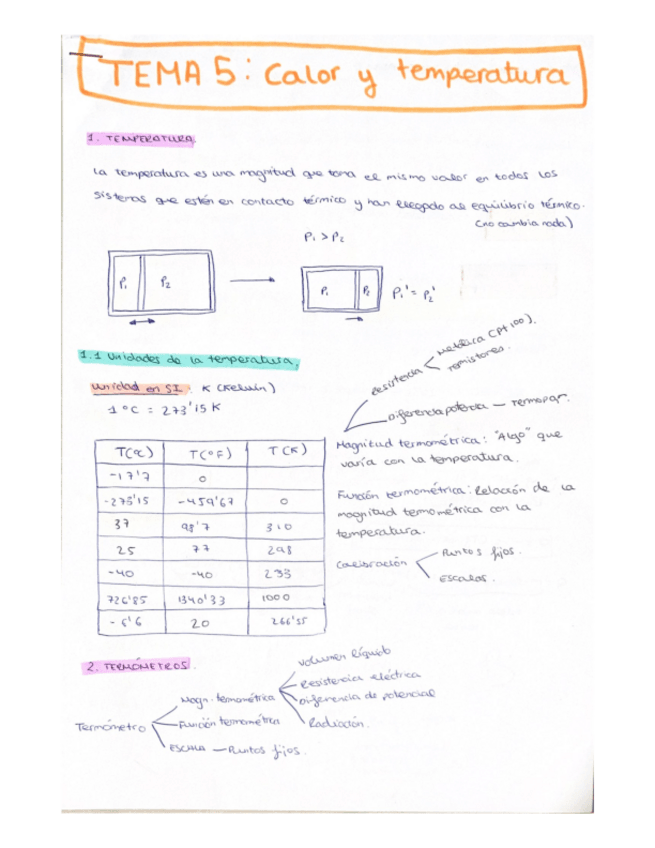 TEMA 5: Calor y temperatura
1. TEMPERATURA.
La temperatura es una magnitud que toma el mismo valor en todos los
sistemas que estén en contacto térmico y han llegado al equilibrio térmico.
(no cambia nada)
P1 > P2
P1 P2
P1 P2 P1' = P2'
1.1 Unidades de la temperatura.
Unidad en SI. K (Kelvin)
1ºC = 273'15 K
Resistencia
Metálica (Pt 100).
Termistores.
Diferencia potencia — Termopar.
T(ºC) T(ºF) T(K)
-17'7 0
-273'15 -459'67 0
37 98'7 310
25 77 298
-40 -40 233
726'85 1340'33 1000
-6'6 20 266'55
Magnitud termométrica: "Algo" que
varía con la temperatura.
Función termométrica: Relación de la
magnitud termométrica con la
temperatura.
Calibración
Puntos fijos.
Escalas.
2. TERMÓMETROS.
Termómetro
Magn. termométrica
Volumen líquido
Resistencia eléctrica
Diferencia de potencial
Radiación.
Función termométrica
ESCALA — Puntos fijos.